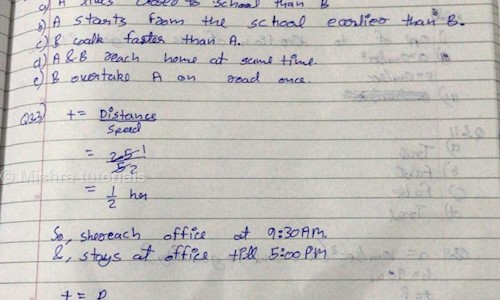 a) A lives closer to school than B
b) A starts from the school earlier than B.
c) B walk faster than A.
d) A & B reach home at same time.
e) B overtake A on road once.
Q33) t = Distance
Speed
= 2.5 1
5 2
© Mishra tutorials
= 1
2 hr
So, she reach office at 9:30 AM.
&, stays at office till 5:00 PM
t = D